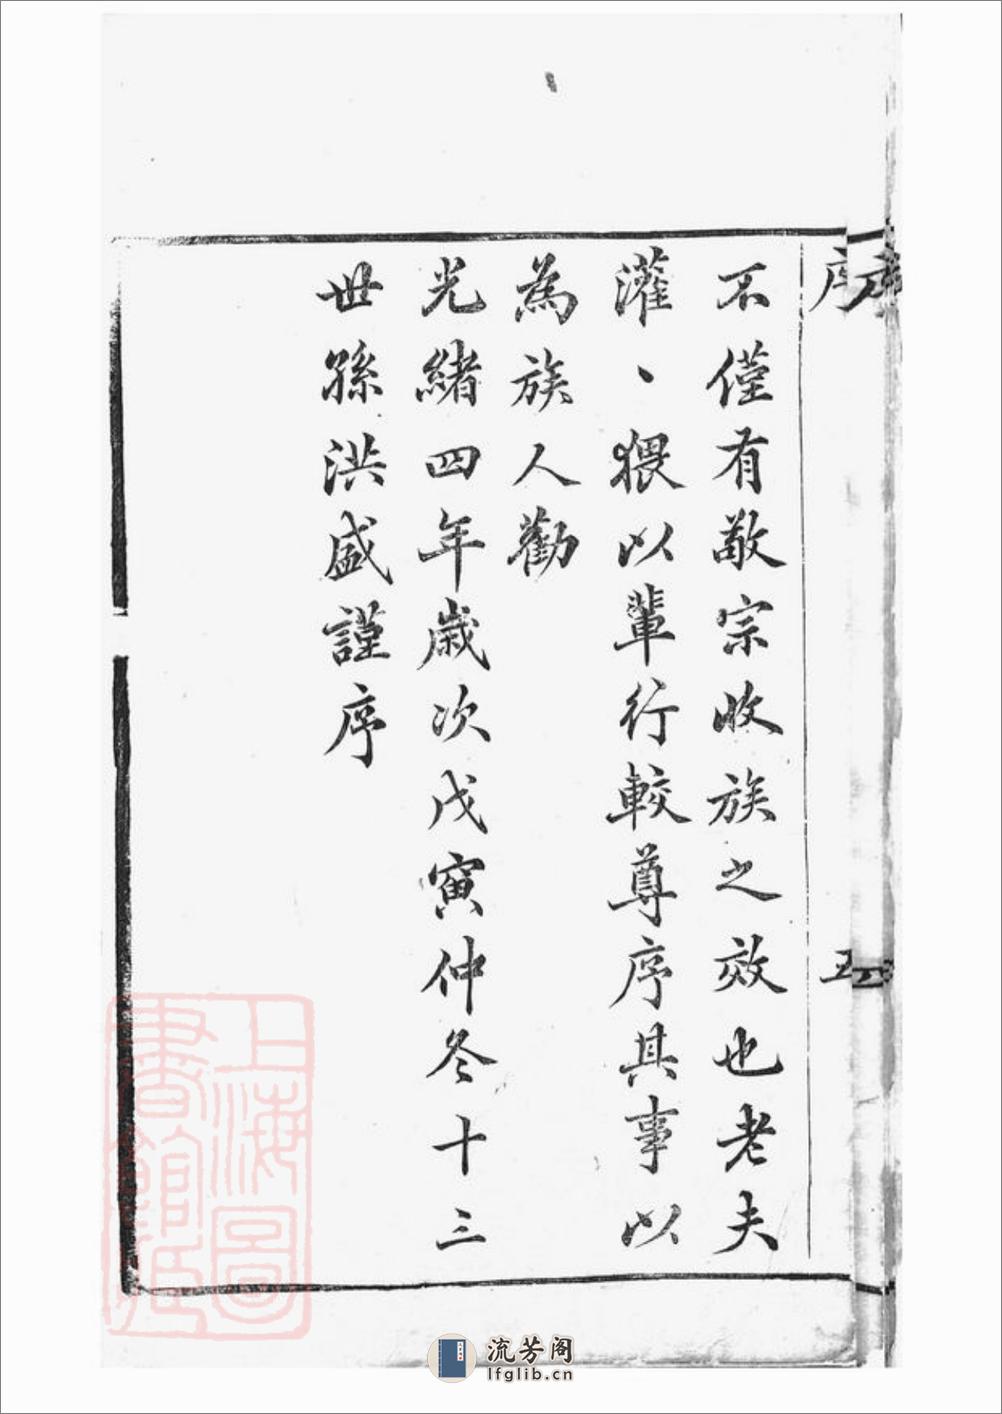 序
五
不僅有敬宗收族之效也老夫
灌、猥以輩行較尊序其事以
為族人勸
光緒四年歲次戊寅仲冬十三
世孫洪盛謹序
上海圖
書館藏
流芳阁
lfglib.cn